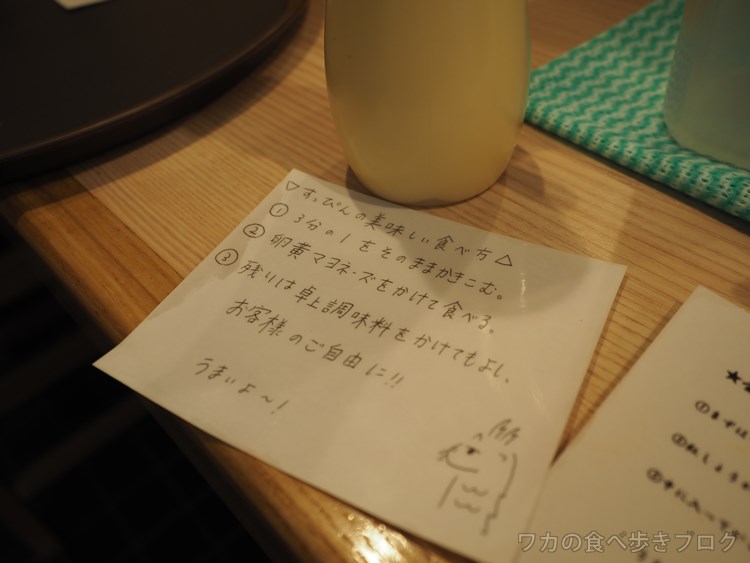 ▽すっぴんの美味しい食べ方△
① 3分の1をそのままかきこむ。
② 卵黄マヨネーズをかけて食べる。
③ 残りは卓上調味料をかけてもよし、
お客様のご自由に!!
うまいよ〜!
★
①まずは
②
③
ワカの食べ歩きブログ